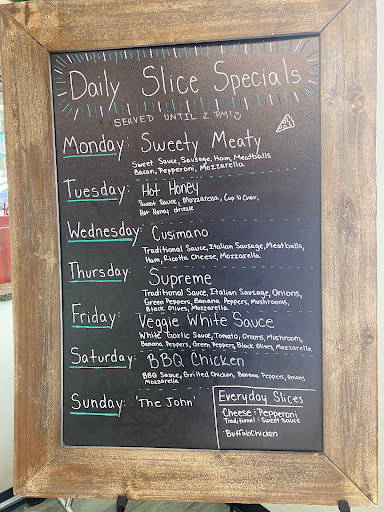 Daily Slice Specials
SERVED UNTIL 2 PM!
Monday: Sweety Meaty
Sweet Sauce, Sausage, Ham, Meatballs
Bacon, Pepperoni, Mozzarella
Tuesday: Hot Honey
Sweet Sauce, Mozzarella, Cup N Char,
Hot Honey drizzle
Wednesday: Cusimano
Traditional Sauce, Italian Sausage, Meatballs,
Ham, Ricotta Cheese, Mozzarella
Thursday: Supreme
Traditional Sauce, Italian Sausage, Onions,
Green Peppers, Banana Peppers, Mushrooms,
Black Olives, Mozzarella
Friday: Veggie White Sauce
White Garlic Sauce, Tomato, Onions, Mushroom,
Banana Peppers, Green Peppers, Black Olives, Mozzarella
Saturday: BBQ Chicken
BBQ Sauce, Grilled Chicken, Banana Peppers, Onions
Mozzarella
Sunday: 'The John'
Everyday Slices
Cheese : Pepperoni
Traditional : Sweet Sauce
Buffalo Chicken